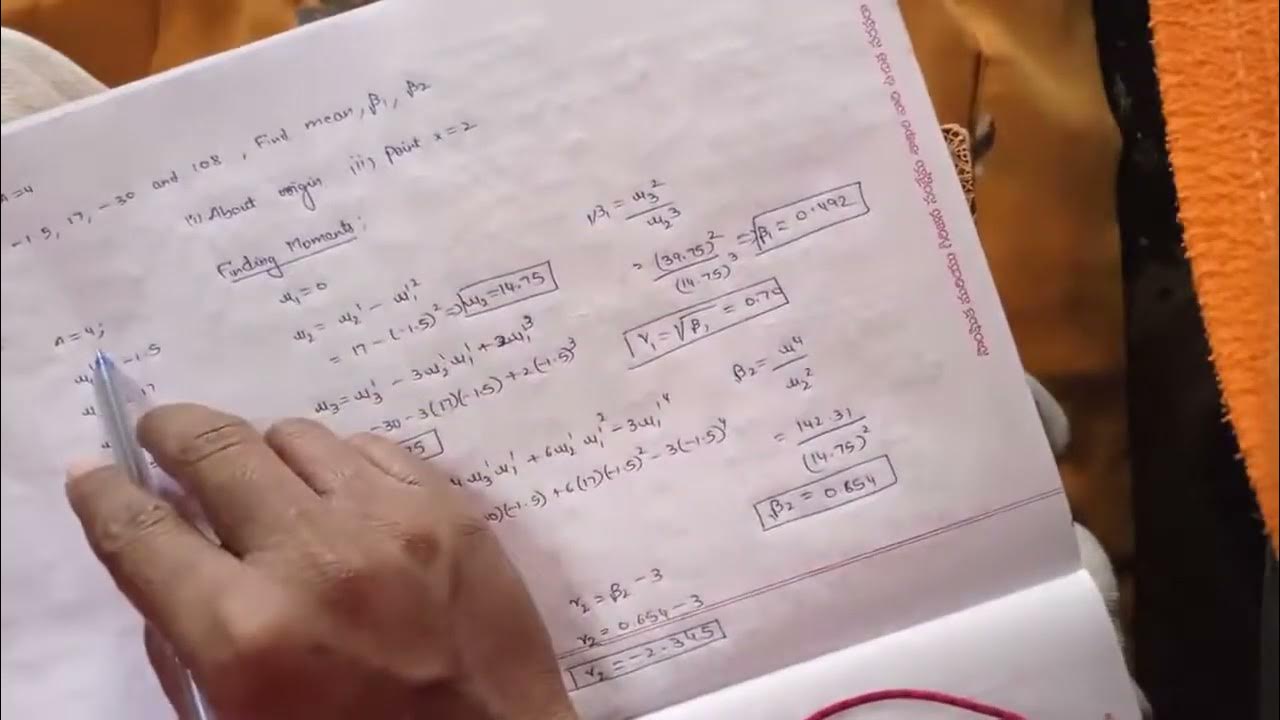 n=4
-1.5, 17, -30 and 108, Find mean, β₁, β₂
(i) About origin (ii) Point x=2
Finding Moments:
n=4;
-1.5
17
μ₁ = 0
μ₂ = μ₂' - μ₁'²
= 17 - (-1.5)² => μ₂ = 14.75
μ₃ = μ₃' - 3μ₂'μ₁' + 2μ₁'³
-30 - 3(17)(-1.5) + 2(-1.5)³
75
4μ₃'μ₁' + 6μ₂'μ₁'² - 3μ₁'⁴
0)(-1.5) + 6(17)(-1.5)² - 3(-1.5)⁴
β₁ = μ₃²/μ₂³
= (39.75)²/(14.75)³ => β₁ = 0.492
γ₁ = √β₁ = 0.70
β₂ = μ4/μ₂²
= 142.31/(14.75)²
β₂ = 0.654
γ₂ = β₂ - 3
γ₂ = 0.654 - 3
γ₂ = -2.345